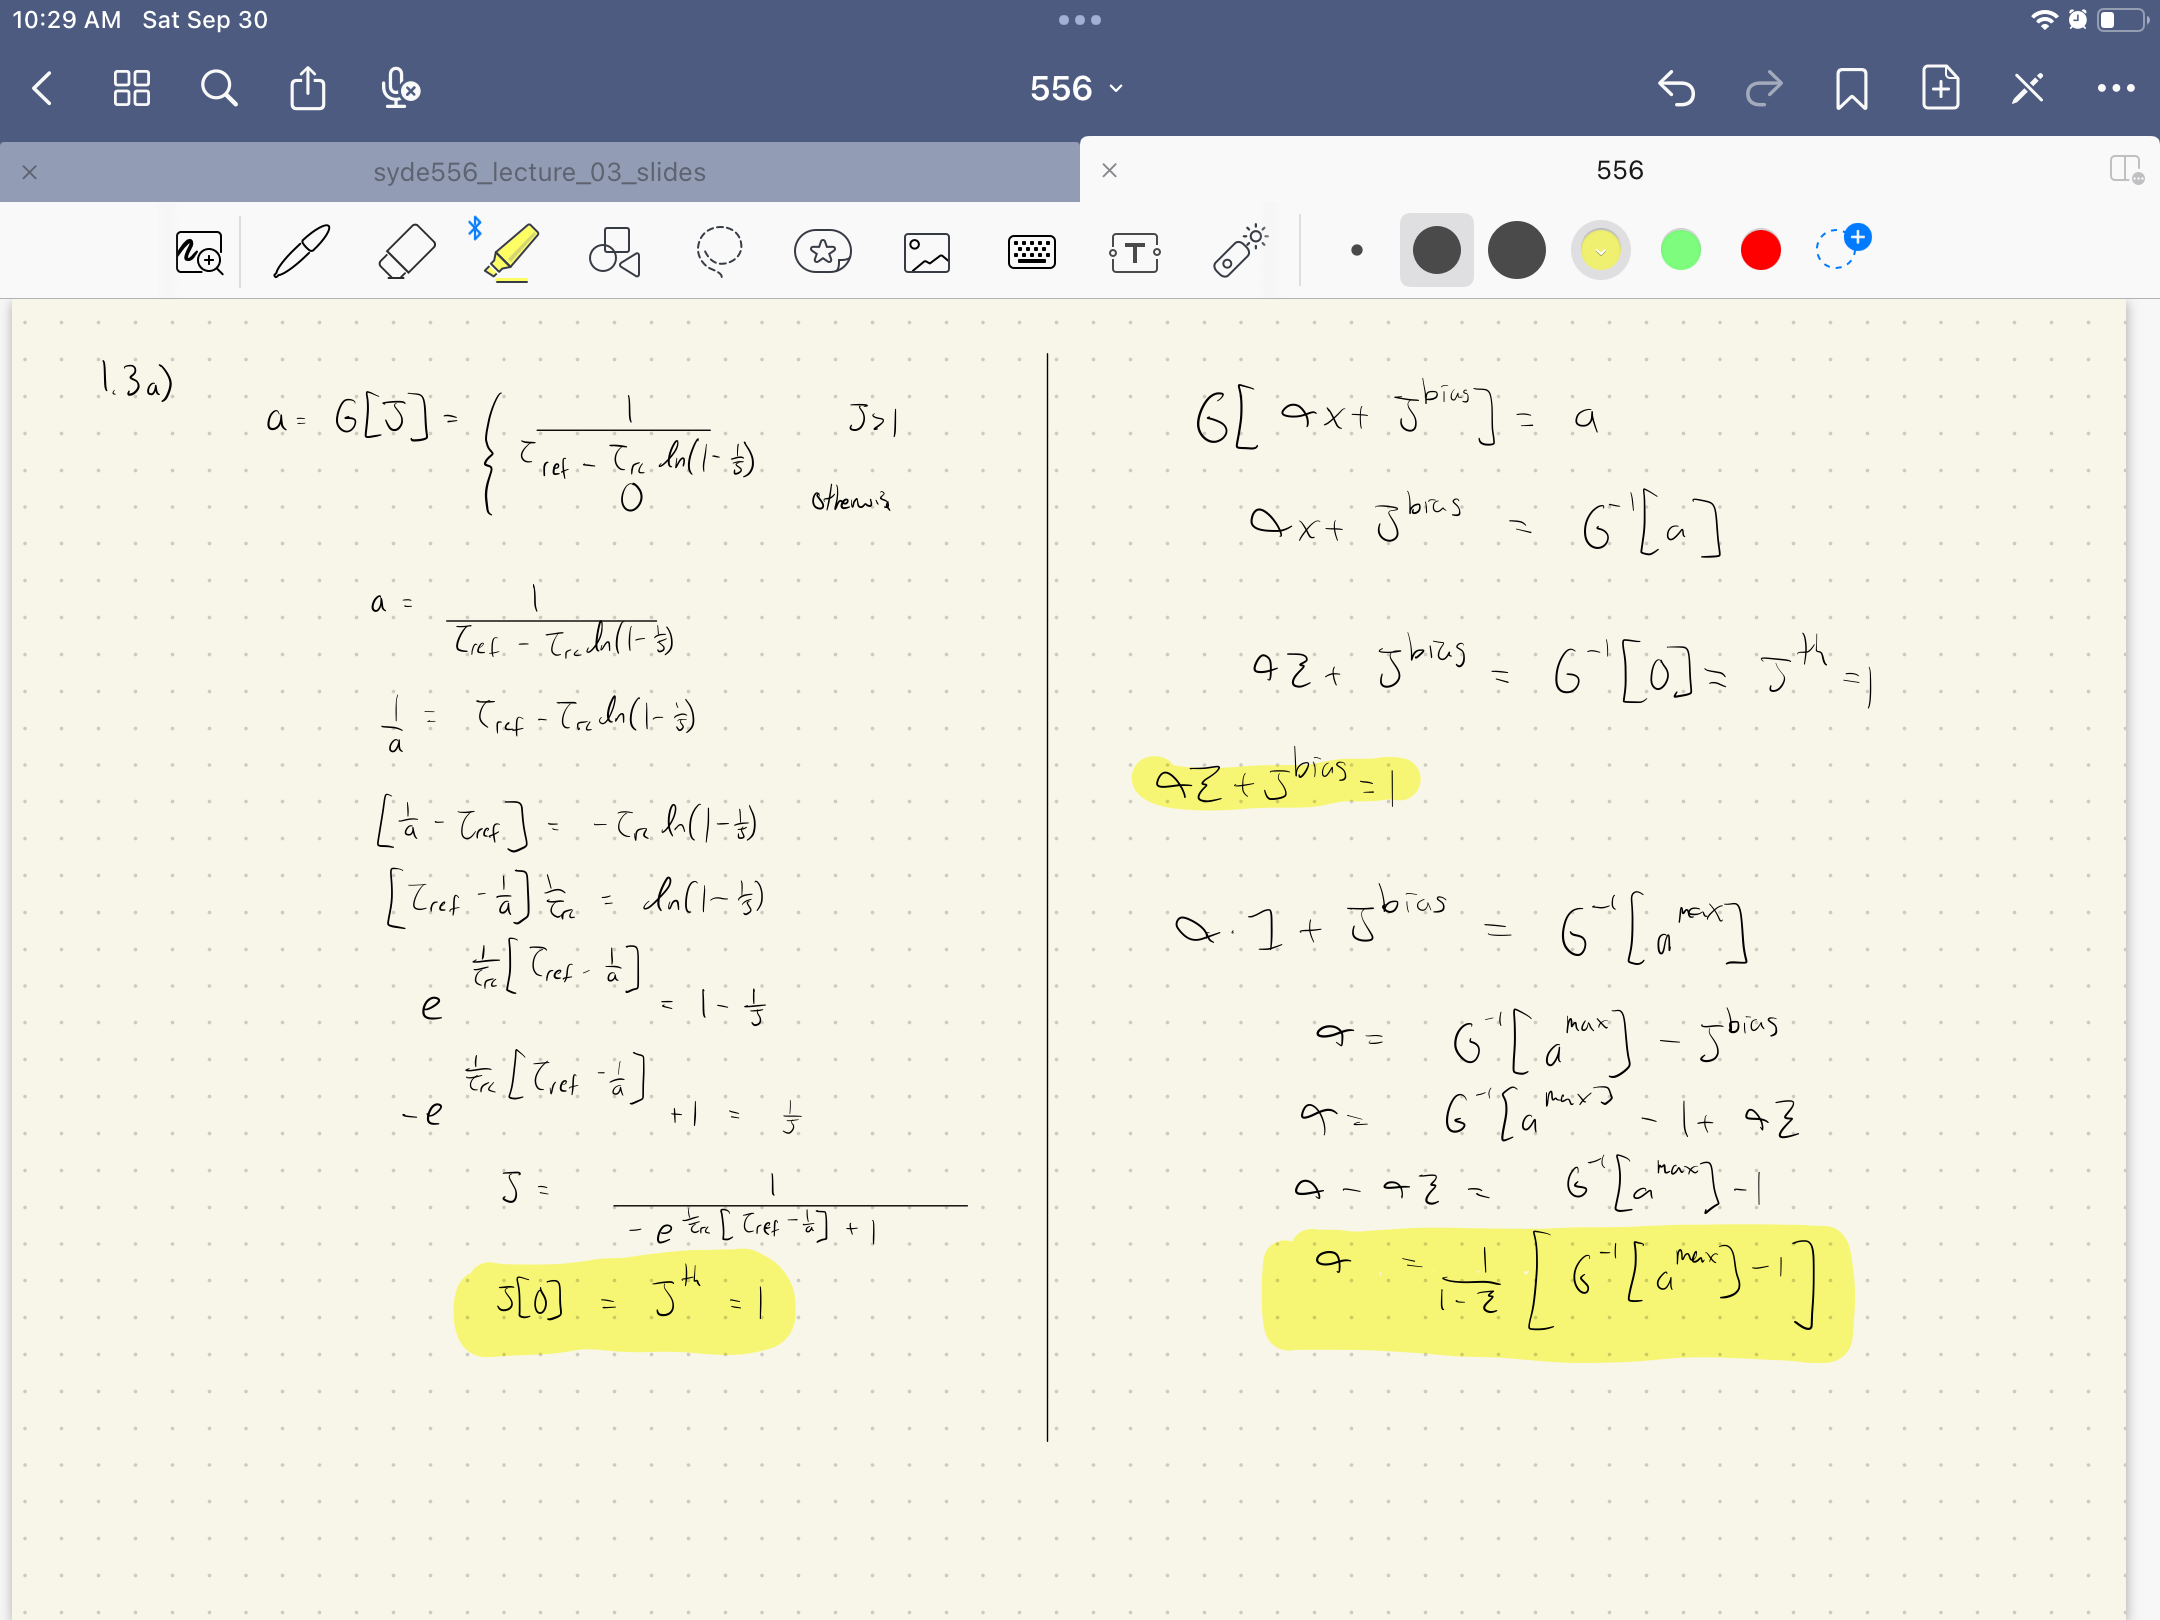 10:29 AM Sat Sep 30
556
syde556_lecture_03_slides
556
T
1.3a)
a = G[J] = { 1 / (τref − τrc ln(1 − 1/J)) J > 1
0 otherwis
a = 1 / (τref − τrc ln(1 − 1/J))
1/a = τref − τrc ln(1 − 1/J)
[1/a − τref] = −τrc ln(1 − 1/J)
[τref − 1/a] 1/τrc = ln(1 − 1/J)
e^(1/τrc [τref − 1/a]) = 1 − 1/J
−e^(1/τrc [τref − 1/a]) + 1 = 1/J
J = 1 / (−e^(1/τrc [τref − 1/a]) + 1)
J[0] = J^th = 1
G[αx + J^bias] = a
αx + J^bias = G^-1[a]
αξ + J^bias = G^-1[0] = J^th = 1
αξ + J^bias = 1
α·1 + J^bias = G^-1[a^max]
α = G^-1[a^max] − J^bias
α = G^-1[a^max] − 1 + αξ
α − αξ = G^-1[a^max] − 1
α = 1/(1 − ξ) [G^-1[a^max] − 1]